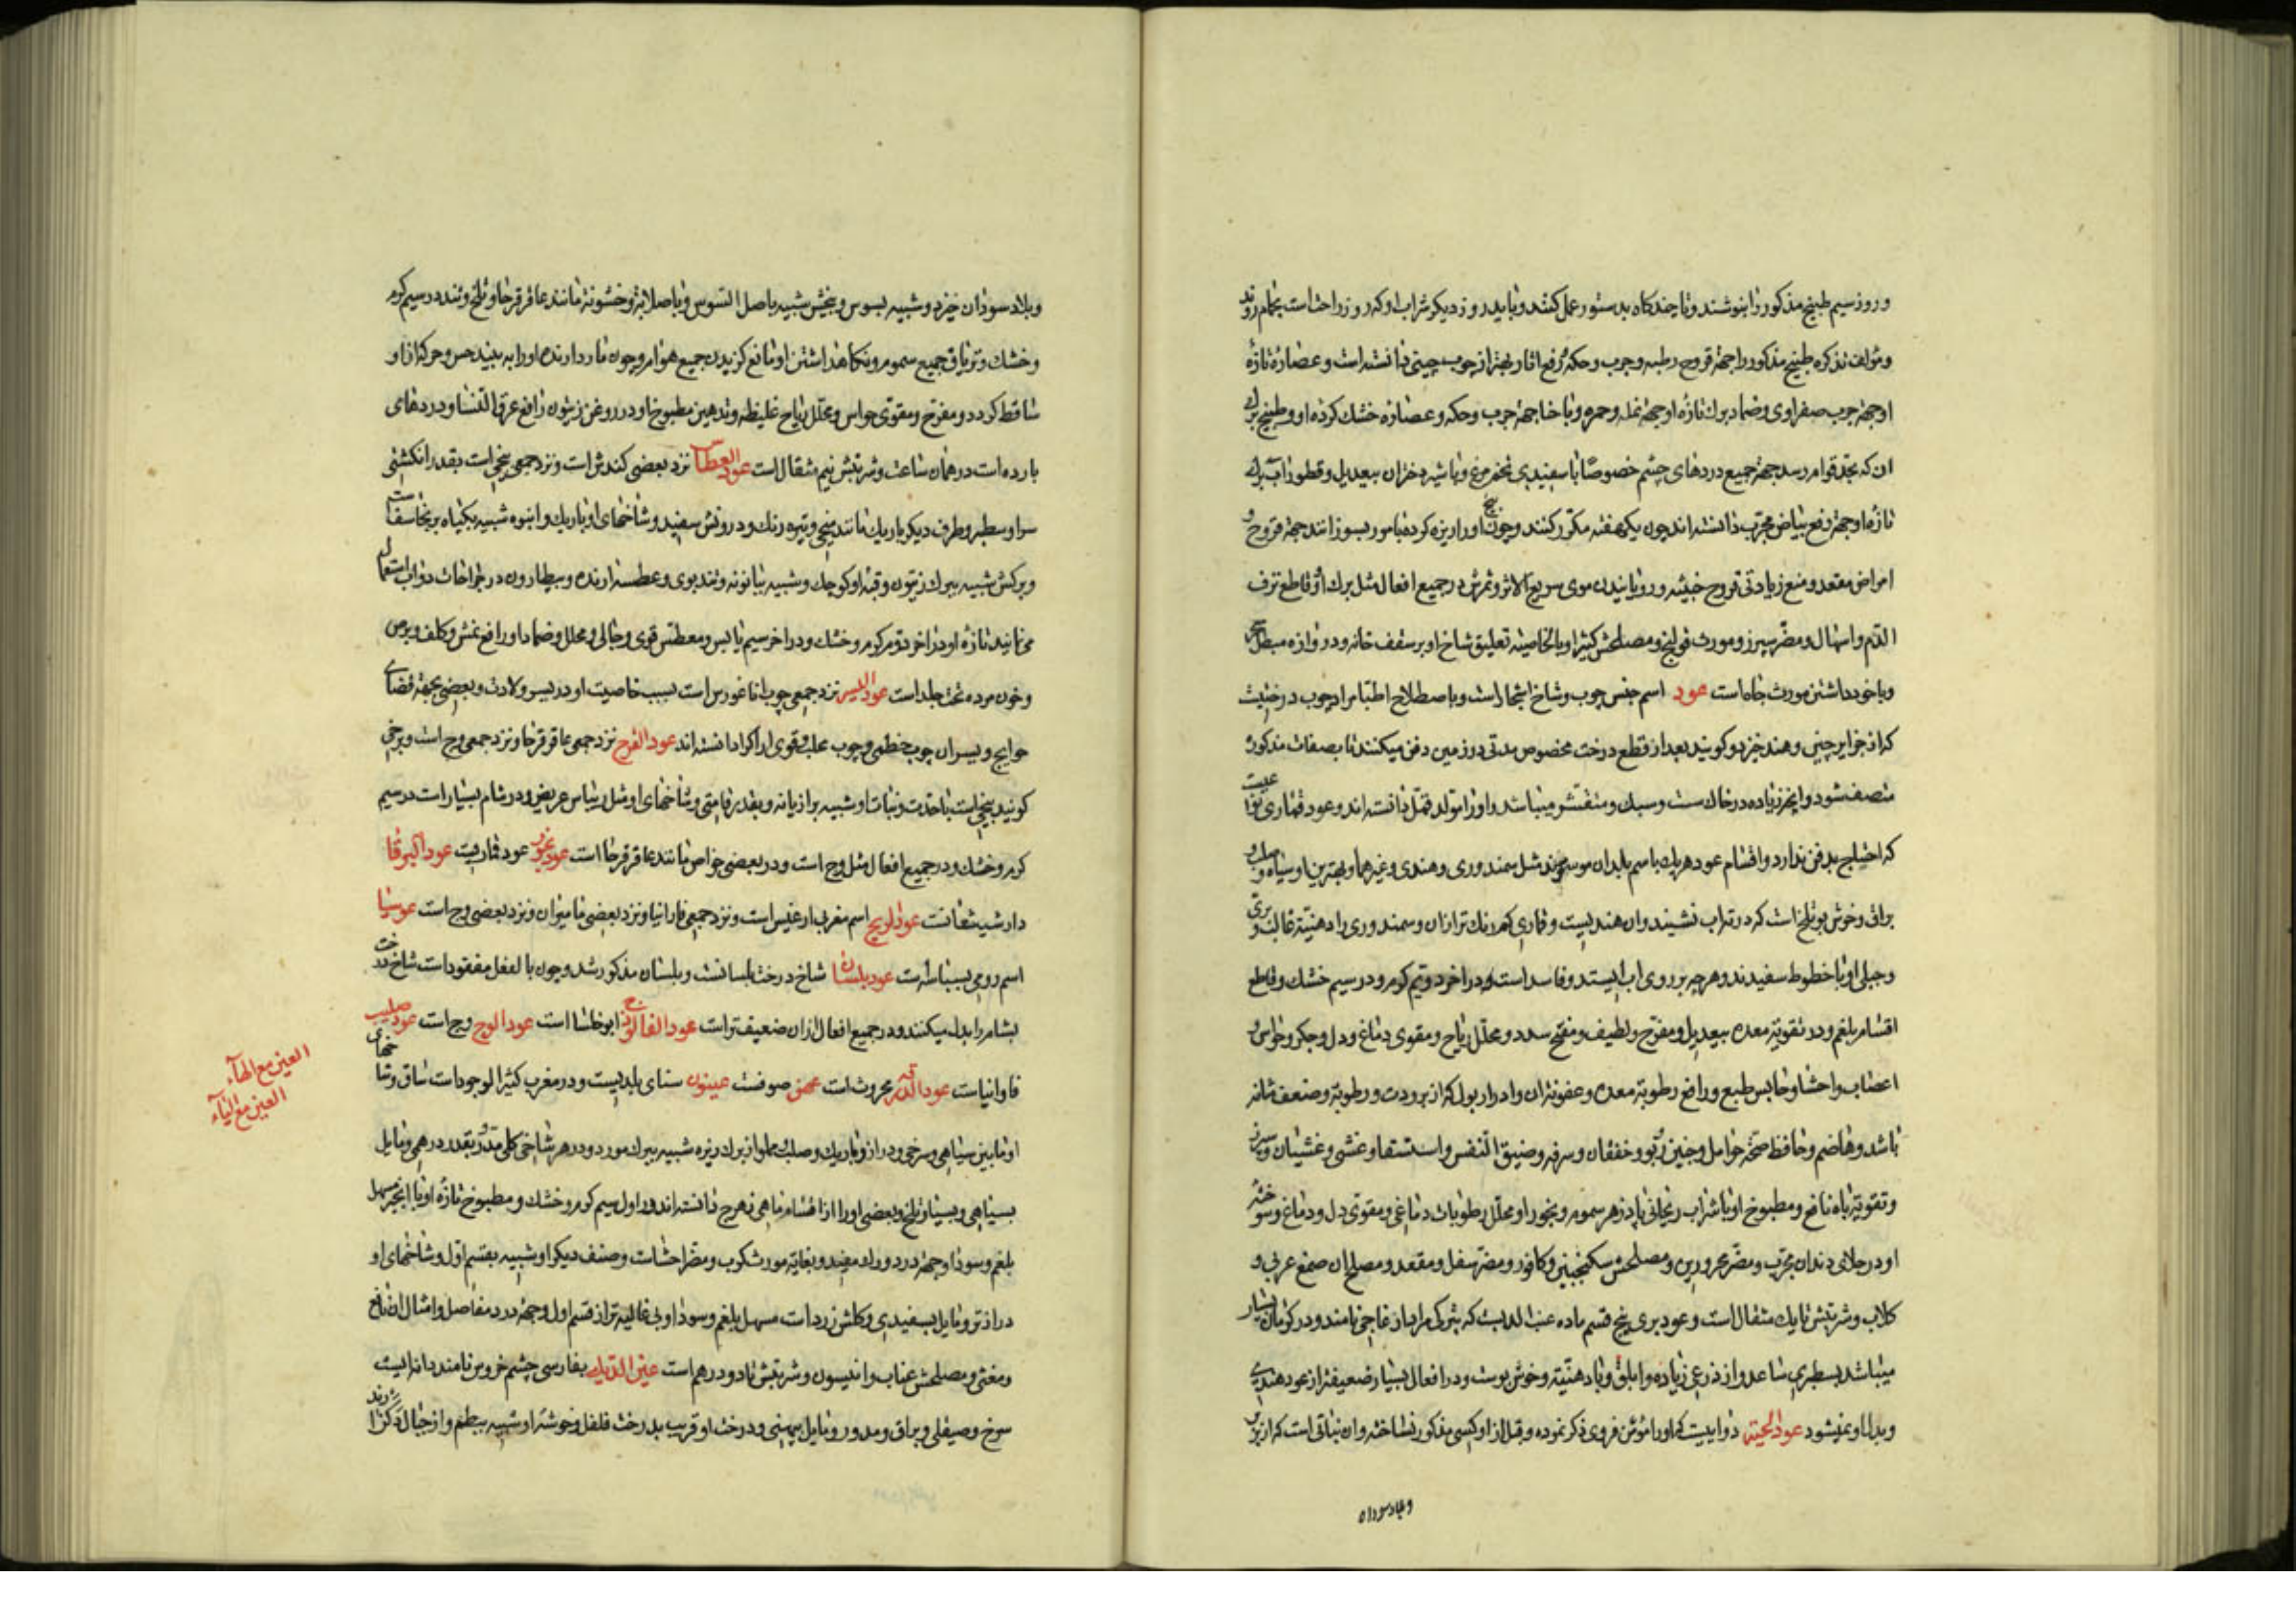 وروز سیم طبیخ مذکور را بنوشند و تا چند کاه بدستور عمل کنند و باید در روز دیکر شراب او که روز راحت است بحمام روند
و مؤلف تذکره طبیخ مذکور را جهة قروح رطبه و جرب و حکه و رفع اثار بهتر از چوب چینی دانسته است و عصاره تازه
او جهة جرب صفراوی و ضماد برک تازه او جهة نمله و حمره و با حنا جهة جرب و حکه و عصاره خشک کرده او و طبیخ برک
ان که بحد قوام رسد جهة جمیع دردهای چشم خصوصا با سفیدی تخم مرغ و با شیر دختران بیعدیل و قطور آب برک
تازه او جهة رفع بیاض مجرب دانسته اند چون یکهفته مکرر کنند و چون بیخ او را ریزه کرده با موربسوزانند جهة قروح و
امراض مقعد و منع زیادتی قروح خبیثه و رویانیدن موی سریع الاثر و ثمرش در جمیع افعال مثل برک او و قاطع نزف
الدم و اسهال و مضر سپرز و مورث قولنج و مصلحش کثیرا و بالخاصیه تعلیق شاخ او بر سقف خانه و دروازه مبطل سحر
و با خود داشتن مورث جاه است عود اسم جنس چوب و شاخ اشجار است و باصطلاح اطبا مراد چوب درختیست
که از جزایر چین و هند خیزد و کویند بعد از قطع درخت مخصوص مدتی در زمین دفن میکنند تا بصفات مذکوره
متصف شود و انچه زیاده در خاک ست و سبک و متفتت میباشد و او را مولد قمل دانسته اند و عود قماری نوعیست
که احتیاج بدفن ندارد و اقسام عود هریک باسم بلدان موسومند مثل سمندوری و هندی و غیرهما و بهترین او سیاه و صلب و
براق و خوش بو و تلخ است که در ته اب نشیند و ان هندیست و قماری کم رنک تر از ان و سمندوری را دهنیة غالب و برّی
و جبلی او با خطوط سفیدند و هرچه بر روی اب ایستد و فاسد است در اخر دویم کرم و در سیم خشک و قاطع
اقسام بلغم و در تقویة معده بیعدیل و مفرح و لطیف و مفتح سدد و محلل ریاح و مقوی دماغ و دل و جکر و حواس و
اعصاب و احشا و حابس طبع و رافع رطوبة معده و عفونة ان و ادرار بول که از برودت و رطوبة و ضعف مثانه
باشد و هاضم و حافظ صحة حوامل و جنین و ربو و خفقان و سرفه و ضیق النفس و استسقا و غشی و غشیان و سپرز
و تقویة باه نافع و مطبوخ او با شراب ریحانی پادزهر سموم و بخور او محلل رطوبات دماغی و مقوی دل و دماغ و سوخته
او در جلای دندان مجرب و مضر محرورین و مصلحش سکنجبین و کافور و مضر سفل و مقعد و مصلح ان صمغ عربی و
کلاب و شربتش تا یک مثقال است و عود بری بیخ قسم ماده عنب الدب است که بترکی مرلباز غاجی نامند و در کوهان بسیار
میباشد بسطبری ساعد و از ذرعی زیاده و ابلق و با دهنیة و خوش بوست و در افعال بسیار ضعیفتر از عود هندی
و بدل او نمیشود عود الحیة دوایست که او را مؤمن فروی ذکر نموده و قبل از او کسی مذکور نساخته و ان نباتی است که از بربر
و بلاد سودان
و بلاد سودان خیزد و شبیه بسوس و بیخش شبیه باصل السوس و با صلابة و خشونة مانند عاقرقرحا و تلخ و تند در سیم کرم
و خشک و تریاق جمیع سموم و نکاهداشتن او مانع کزیدن جمیع هوام و چون مار دارنده او را به بیند حس و حرکة از او
ساقط کردد و مفرح و مقوی حواس و محلل ریاح غلیظه و تدهین مطبوخ او در روغن زیتون رافع عرق النسا و دردهای
بارده است در همان ساعت و شربتش نیم مثقال است عود العطاس نزد بعضی کندش است و نزد جمعی بیخی است بقدر انکشتی
سر او سطبر و طرف دیکر باریک مانند میخی و تیره رنک و درونش سفید و شاخهای او باریک و انبوه شبیه بکیاه برنجاسف است
و برکش شبیه ببرک زیتون و قبهٔ او کوچک و شبیه ببابونه و تند بوی و عطسه ارنده و بیطارون در جراحات دواب استعمال
می‌نمایند تازه او در اخر دوم کرم و خشک و در اخر سیم یابس و معطس قوی و جالی و محلل و ضماد او رافع نمش و کلف و برص
و خون مرده تحت جلد است عود الیسر نزد جمعی چوب اناغورس است بسبب خاصیت او در یسر ولادت و بعضی بجهة قضای
حوایج و یسر ان چوب خطمی و چوب محلب و قوی اراک را دانسته اند عود القرح نزد جمعی عاقرقرحا و نزد جمعی وج است و برخی
کویند بیخی است با حدت و نبات او شبیه برازیانه و بقدر قامتی و شاخهای او مثل ریباس عریض و در شام بسیار است در سیم
کرم و خشک و در جمیع افعال مثل وج است و در بعضی خواص مانند عاقرقرحا است عود بخور عود قماریست عود البرق
دار شیشعانست عود الریح اسم مغربی ارغیس است و نزد جمعی فاوانیا و نزد بعضی مامیران و نزد بعضی وج است عوسیا
اسم رومی بسباسه است عود بلسان شاخ درخت بلسانست و بلسان مذکور شد و چون بالفعل مفقود است شاخ درخت
بشام را بدل میکنند و در جمیع افعال از ان ضعیفتر است عود الفالوذج ابوخلسا است عود الوج وج است عود صلیب
فاوانیاست عود الدرقه محروث است عهن صوفست عینون سنای بلدیست و در مغرب کثیر الوجود است ساق و شاخهای
او مابین سیاهی و سرخی و دراز و باریک و صلب و مملو از برک ریزه شبیه ببرک مورد و در هر شاخی کلی مدور بقدر درهمی و مایل
بسیاهی و بسیار تلخ و بعضی او را از اقسام ماهی زهرج دانسته اند در اول سیم کرم و خشک و مطبوخ تازه او با انجیر مسهل
بلغم و سودا و جهة درد ورک مفید و بغایة مورث کرب و مضر احشاست و صنف دیکر او شبیه بقسم اول و شاخهای او
دراز تر و مایل بسفیدی و کلش زرد است مسهل بلغم و سودا و بی غایله تر از قسم اول و جهة درد مفاصل و امثال ان نافع
و مغثی و مصلحش عناب و انیسون و شربتش تا دو درهم است عین الدیک بفارسی چشم خروس نامند دانه ایست
سرخ و صیقلی و براق و مدور و مایل به پهنی و درخت او قریب بدرخت فلفل و خوشه او شبیه ببطم و از جبال دکن اورند
العین مع الهاء
العین مع الیاء